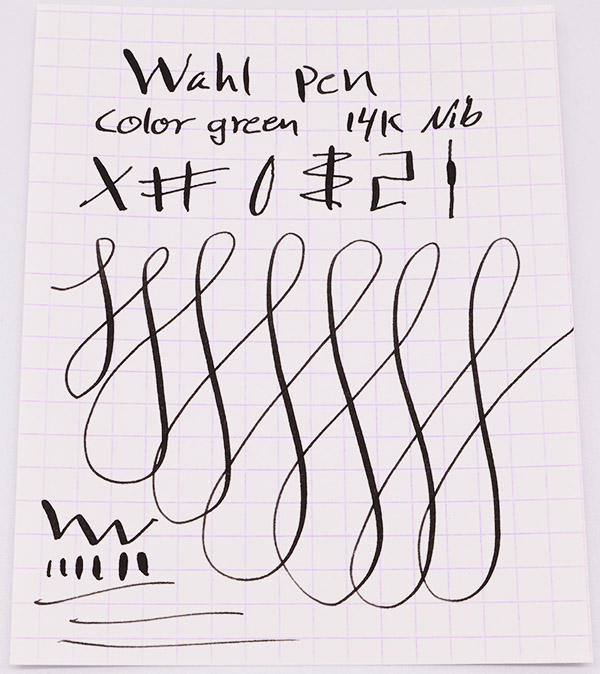 Wahl pen
Color green 14K Nib
X # 0 $ 2 1